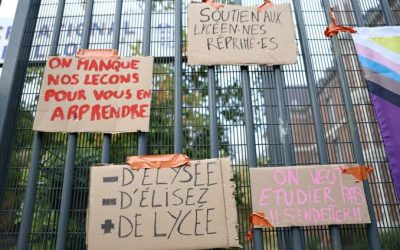 SOUTIEN AUX
LYCÉEN·NES
RÉPRIMÉ·ES
ON MANQUE
NOS LEÇONS
POUR VOUS EN
APPRENDRE
- D'ELYSÉE
- D'ÉLISEZ
+ DE LYCÉE
ON VEUT
ETUDIER PAS
S'ENDETTER!!